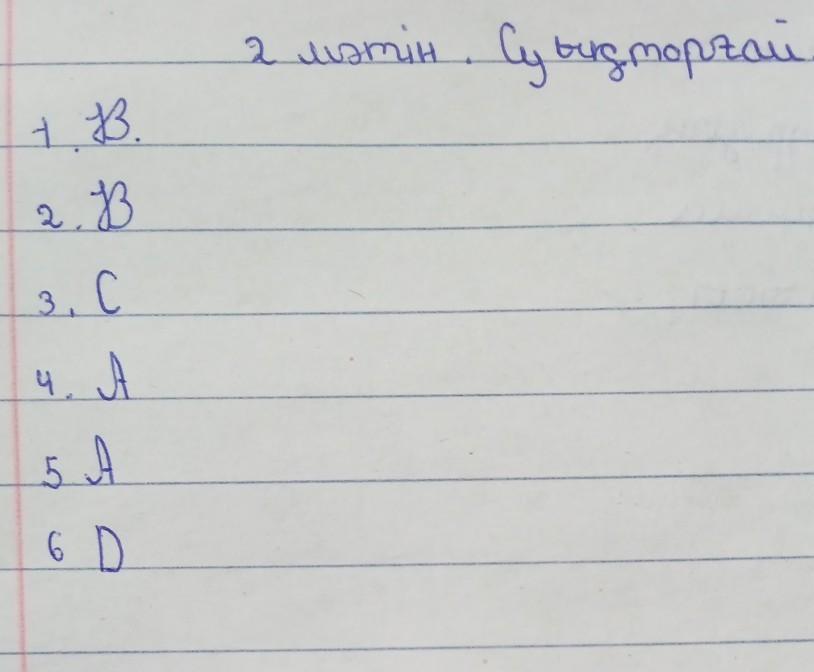 2 мәтін. Суықторғай
1. В.
2. В
3. С
4. А
5 А
6 D